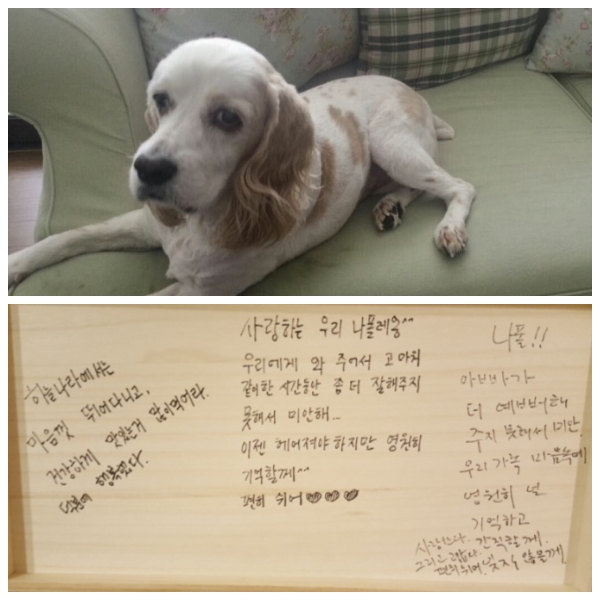 하늘나라에서는
마음껏 뛰어다니고,
건강하게 맛있는거 많이먹어라.
덕분에 행복했다.
사랑하는 우리 나폴레옹^^
우리에게 와 주어서 고마워
같이한 시간동안 좀 더 잘해주지
못해서 미안해...
이젠 헤어져야 하지만 영원히
기억할게^^
편히 쉬어♥♥♥
나폴!!
아빠가
더 예뻐해
주지 못해서 미안.
우리 가족 마음속에
영원히 널
기억하고
사랑한다. 간직할게.
그리고 고맙다.
편히 쉬어. 잊지 않을게.